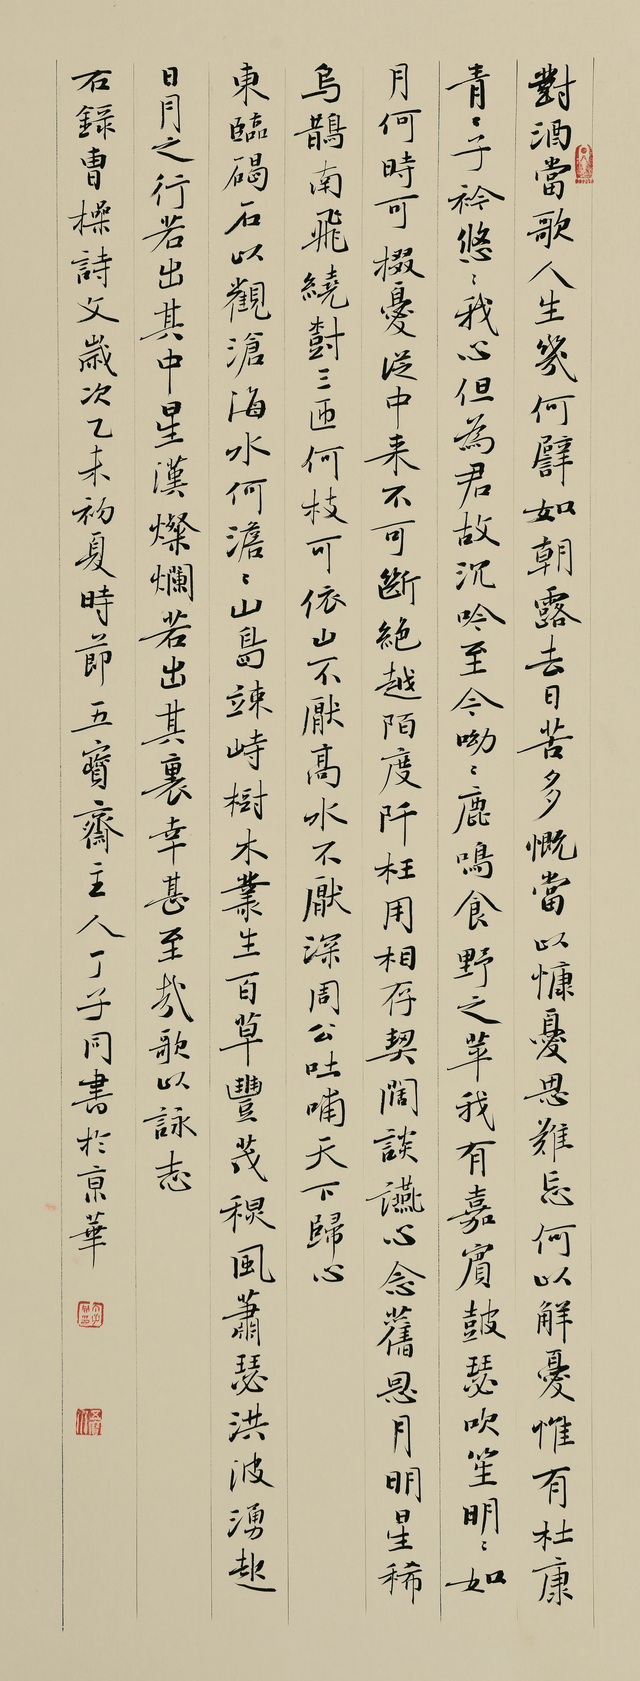 對酒當歌人生幾何譬如朝露去日苦多慨當以慷憂思難忘何以解憂惟有杜康
青〻子衿悠〻我心但為君故沉吟至今呦〻鹿鳴食野之苹我有嘉賓鼓瑟吹笙明〻如
月何時可掇憂從中来不可斷絕越陌度阡枉用相存契闊談讌心念舊恩月明星稀
烏鵲南飛繞對三匝何枝可依山不厭高水不厭深周公吐哺天下歸心
東臨碣石以觀滄海水何澹〻山島竦峙樹木叢生百草豐茂穐風蕭瑟洪波湧起
日月之行若出其中星漢燦爛若出其裏幸甚至哉歌以詠志
右錄曹操詩文歲次乙未初夏時節五寶齋主人丁子同書於京華